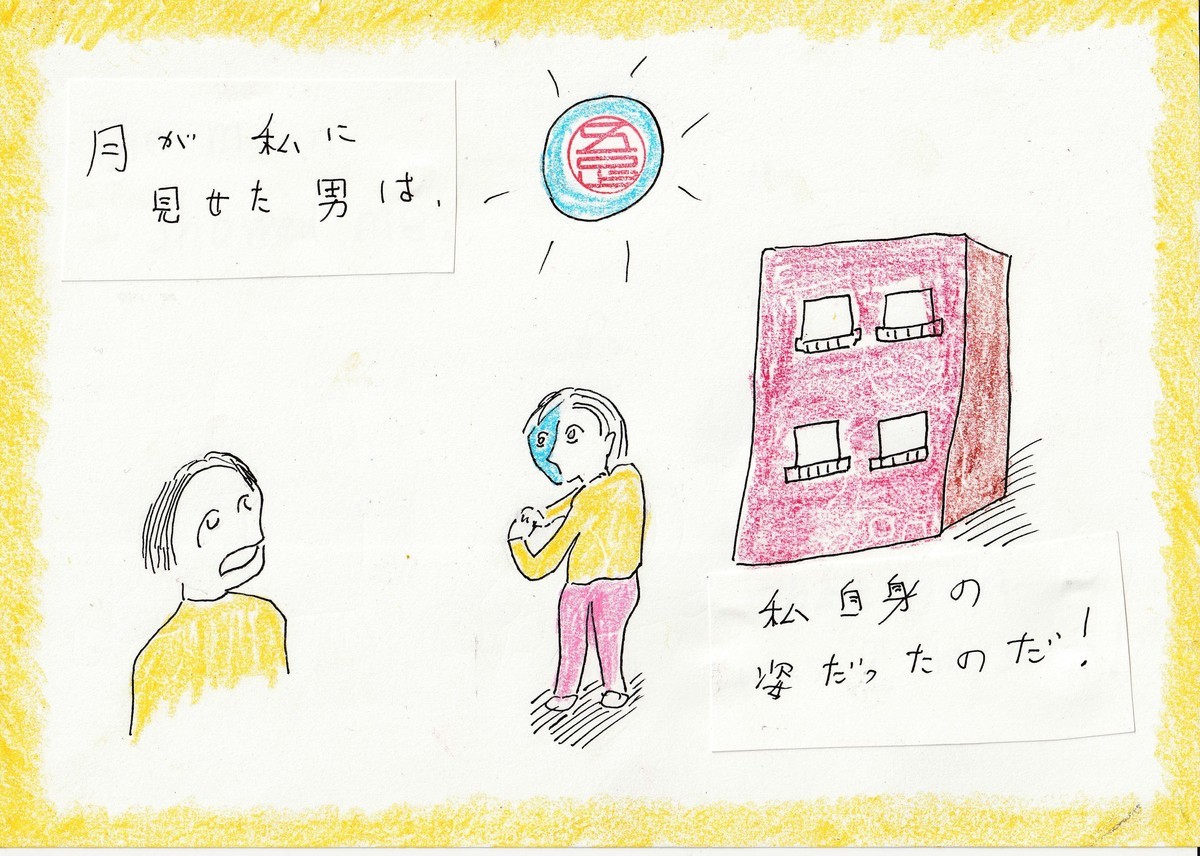 月が 私に
見せた 男は、
私自身の
姿だったのだ!